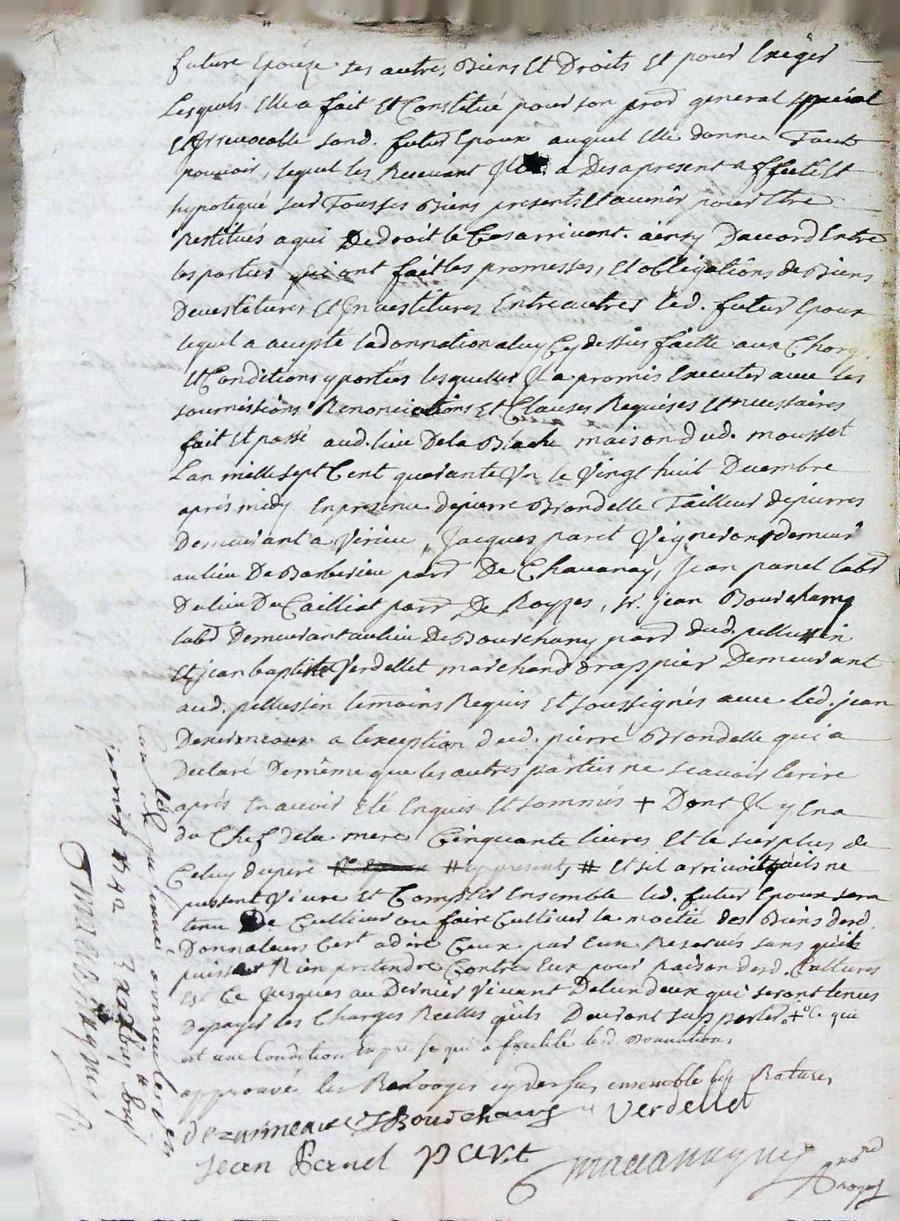 future Epouze ses autres Biens Et Droits Et pour Exeger
Lesquels Elle a fait Et Constitué pour son procr general special
Et Irrevocable sond. futur Epoux auquel Elle donne Tout
pouvoir, lequel les Recevant Il a Des apresent affecté Et
hypotequé sur Tous ses Biens presents Et avenir pour Etre
Restitués a qui De droit le Cas arrivent. ainsy Daccord Entre
les parties qui ont fait les promesses, Et obligations de Biens
Devestitures Et Investitures Entre autres led. futur Epoux
lequel a accepté la donnation a luy Cy dessus faitte aux Charg.
Et Conditions y portées lesquelles Il a promis Executer avec les
soumissions Renonciations Et Clauses Requises Et necessaires
fait Et passé aud. lieu De la Blache maison dud. mousset
Lan mille sept Cent quarante Un le Vingt huit Decembre
aprés midy En presence de pierre Brondelle Tailleur de pierres
Demeurant a Virieu, Jacques paret Vigneron demeurt
au lieu De Barberieu parr De Chavanay, Jean panel labr
Du lieu Du Cailliat parr De Royzes, sr. jean Bourchany
labr Demeurant au lieu De Bourchany parr dud. pellussin
Et jean baptiste Verdellet marchand drappier Demeurant
aud. pellussin temoins Requis Et soussignés avec led. jean
Dezormeaux a lexception dud. pierre Brondelle qui a
Declaré De même que les autres parties ne scavoir Ecrire
aprés En avoir Eté Enquis Et sommés + Dont Il y En a
du Chef de la mere Cinquante livres Et le surplus de
Celuy du pere # cy present, # Et sil arrivoit quils ne
pussent Vivre Et Compatir Ensemble led. futur Epoux sera
tenu De Cultiver ou faire Cultiver la moitié des Biens desd.
Donnateurs Cest a dire Ceux par Eux Reservés sans quil
puisse Rien pretendre Contre Eux pour Raison desd. Cultures
Et Ce Jusques au Dernier Vivant De lun deux qui seront tenus
De payer les Charges Reelles quils Devront supporter + Ce qui
est une Condition Expresse qui a facilité led. Donnations,
approuvé les Renvoyes cy dessus, ensemble les Ratures
dezormeaux JBourchany Verdellet
Jean Panel Paret
nore
Royal